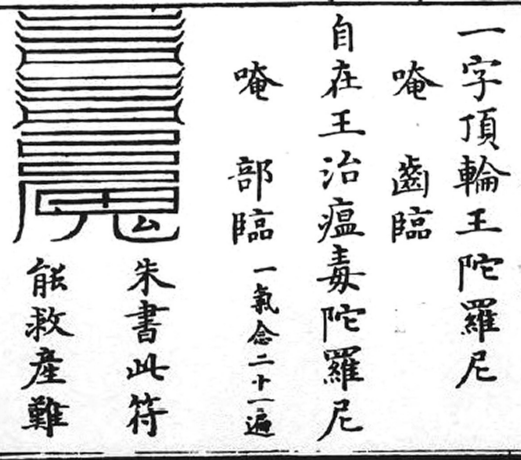 一字頂輪王陀羅尼
唵 齒臨
自在王治瘟毒陀羅尼
唵 部臨 一氣念二十一遍
朱書此符
能救產難